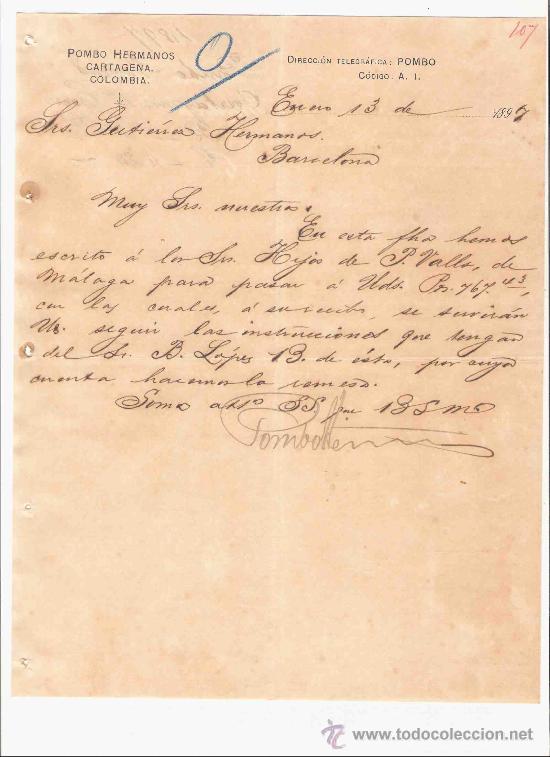 107
POMBO HERMANOS
CARTAGENA.
COLOMBIA.
DIRECCIÓN TELEGRÁFICA: POMBO
CÓDIGO: A. I.
Enero 13 de 1897
Srs. Gutiérrez Hermanos.
Barcelona
Muy Srs. nuestros:
En esta fha hemos
escrito á los Srs. Hijos de P. Valls, de
Málaga para pasar á Uds. Ps. 767.43,
con las cuales, á su recibo, se servirán
Us. seguir las instrucciones que tengan
del Sr. B. López B. de ésta, por cuya
cuenta hacemos la remesa.
Somos atts SS que BSM
Pombo Hnos
todocoleccion
www.todocoleccion.net